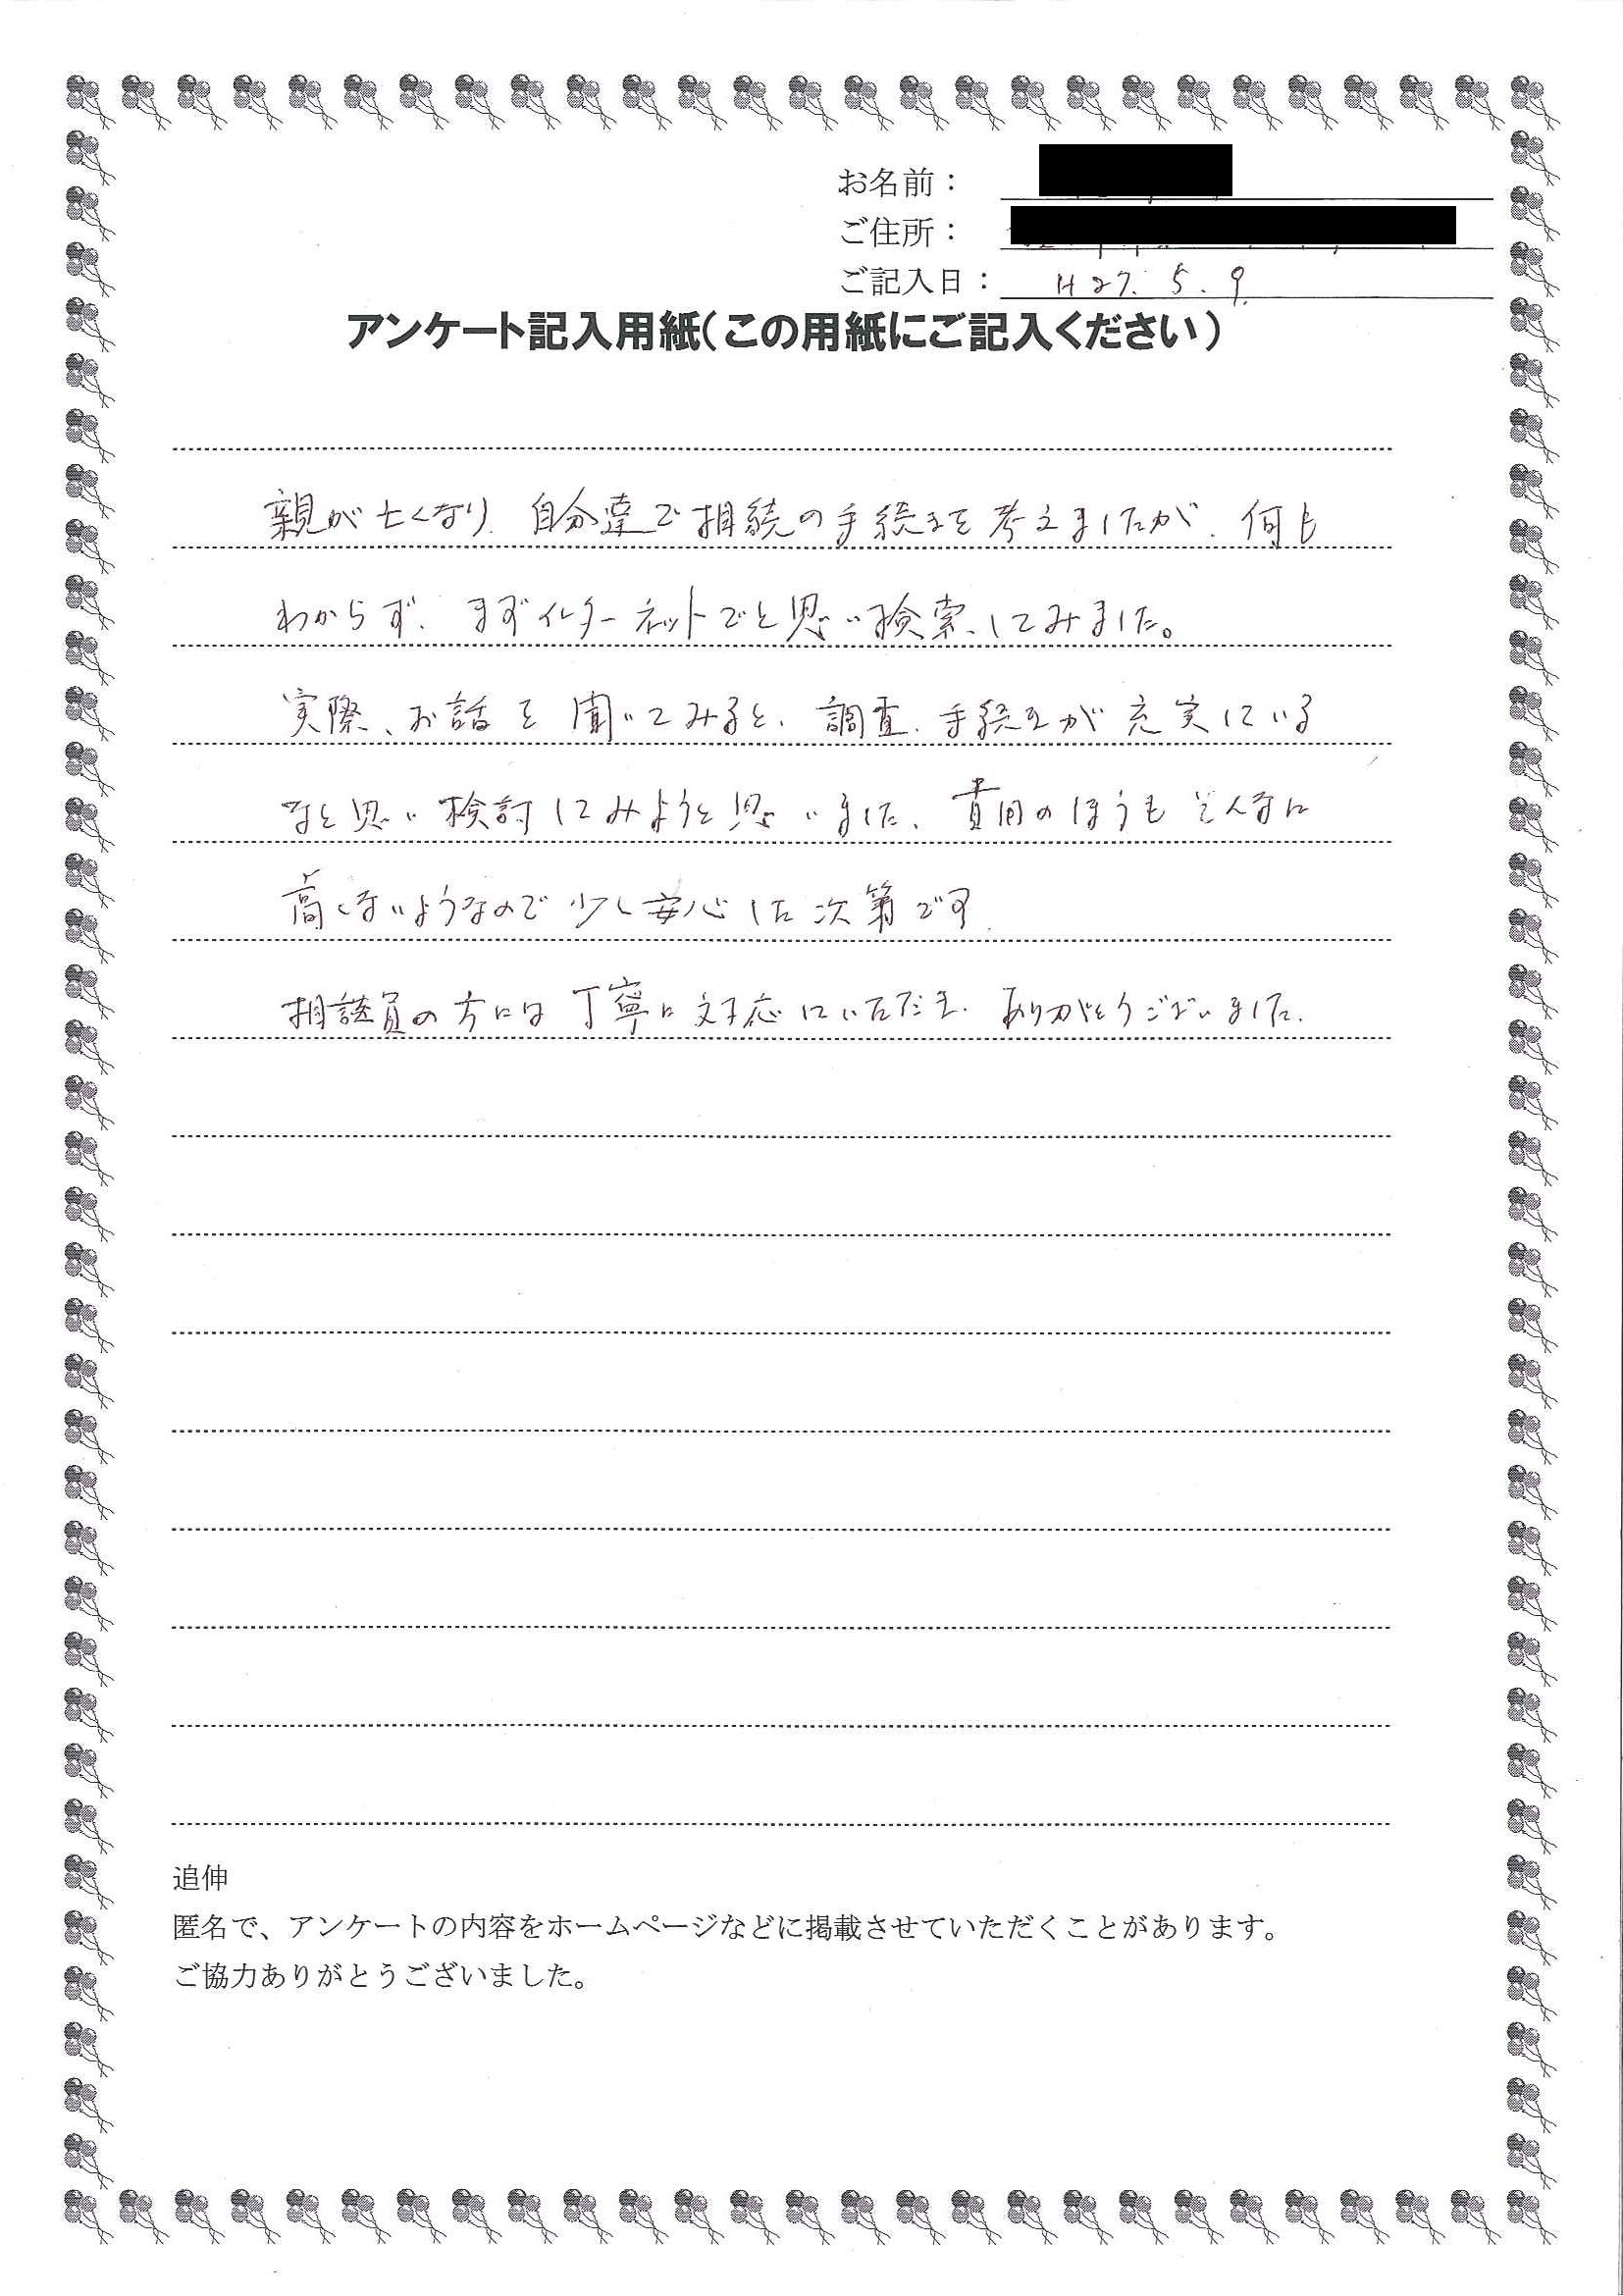 お名前：
ご住所：
ご記入日： H27. 5. 9.
アンケート記入用紙（この用紙にご記入ください）
親が亡くなり、自分達で相続の手続きを考えましたが、何も
わからず、まずインターネットでと思い検索してみました。
実際、お話を聞いてみると、調査、手続きが充実している
なと思い検討してみようと思いました、費用のほうもそんなに
高くないようなので少し安心した次第です.
相談員の方には丁寧に対応していただき、ありがとうございました.
追伸
匿名で、アンケートの内容をホームページなどに掲載させていただくことがあります。
ご協力ありがとうございました。